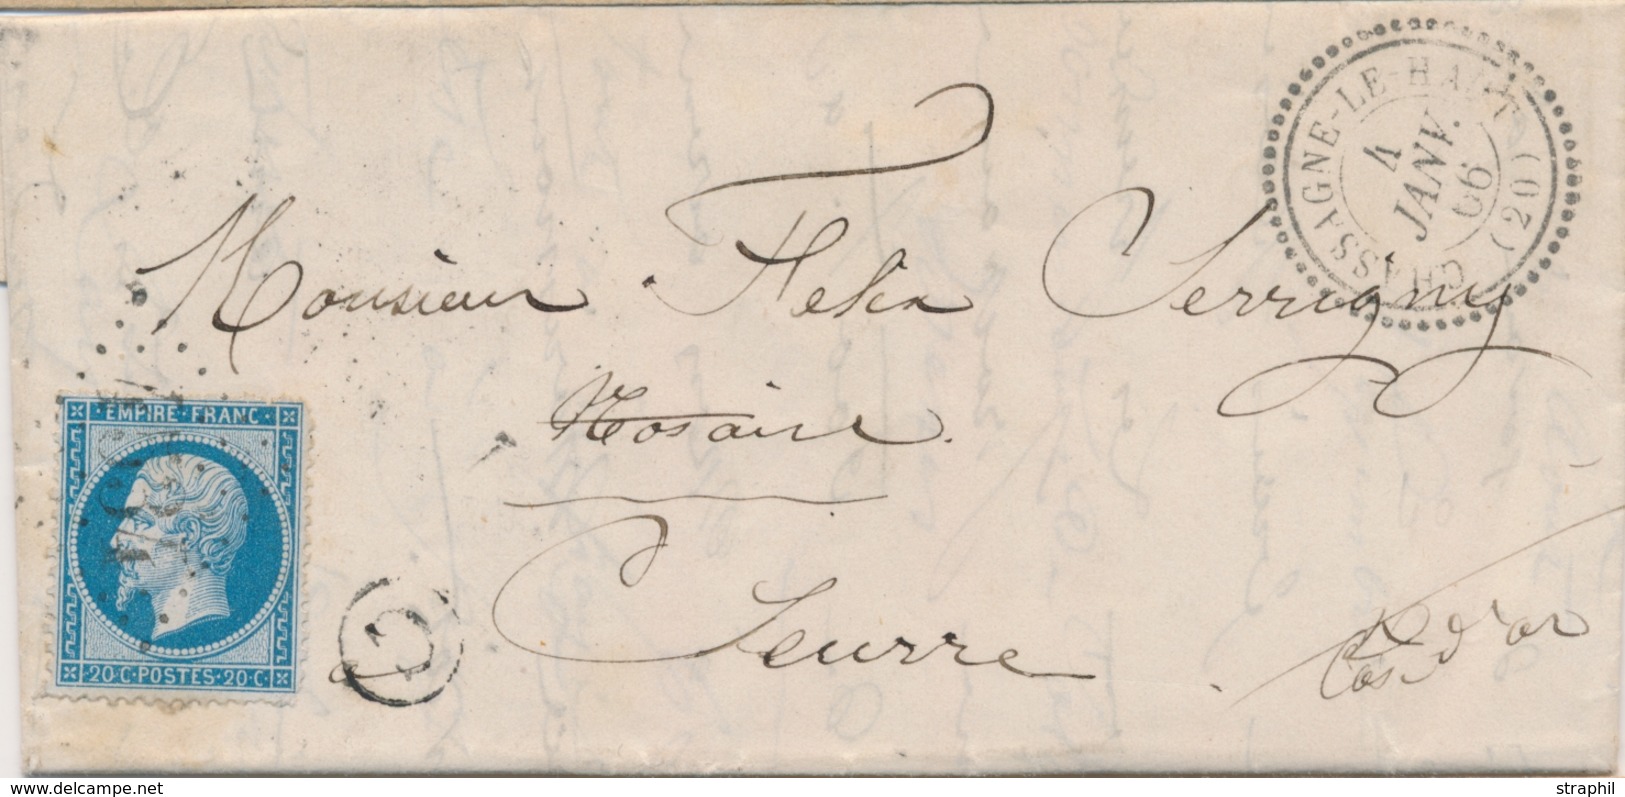 CHASSAGNE-LE-HAUT (20)
4
JANV.
66
Monsieur Felix Serrigny
Notaire.
Seurre
Cote d'or
EMPIRE · FRANC ·
20 · C · POSTES · 20 · C ·
www.delcampe.net
straphil